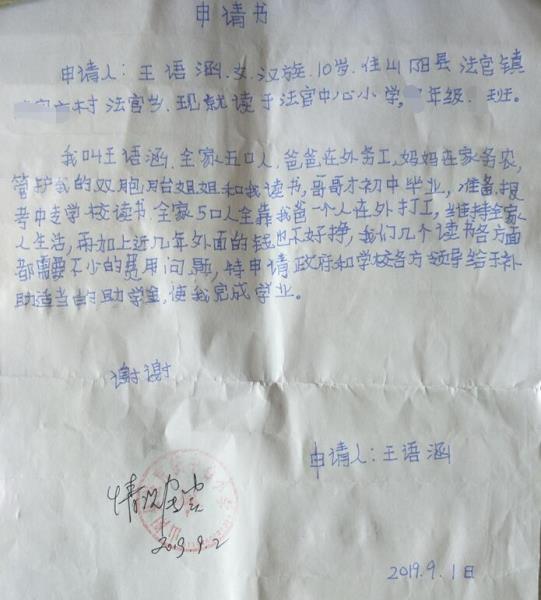 申请书
申请人：王语涵.女.汉族.10岁.住山阳县法官镇
村法官乡.现就读于法官中心小学,年级.班。
我叫王语涵.全家五口人,爸爸在外务工,妈妈在家务农,
管护我的双胞胎姐姐和我读书,哥哥才初中毕业,准备报
考中专学校读书.全家5口人全靠我爸一个人在外打工,维持全家
人生活,再加上近几年外面的钱也不好挣,我们几个读书各方面
都需要不少的费用问题,特申请政府和学校各方领导给于补
助适当的助学金,使我完成学业。
谢谢
申请人：王语涵
情况属实
2019.9.2
2019.9.1日